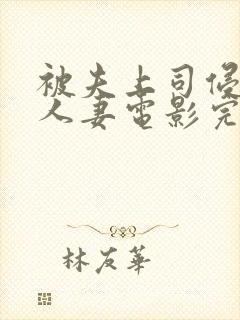 被夫上司侵
人妻電影完
林友華